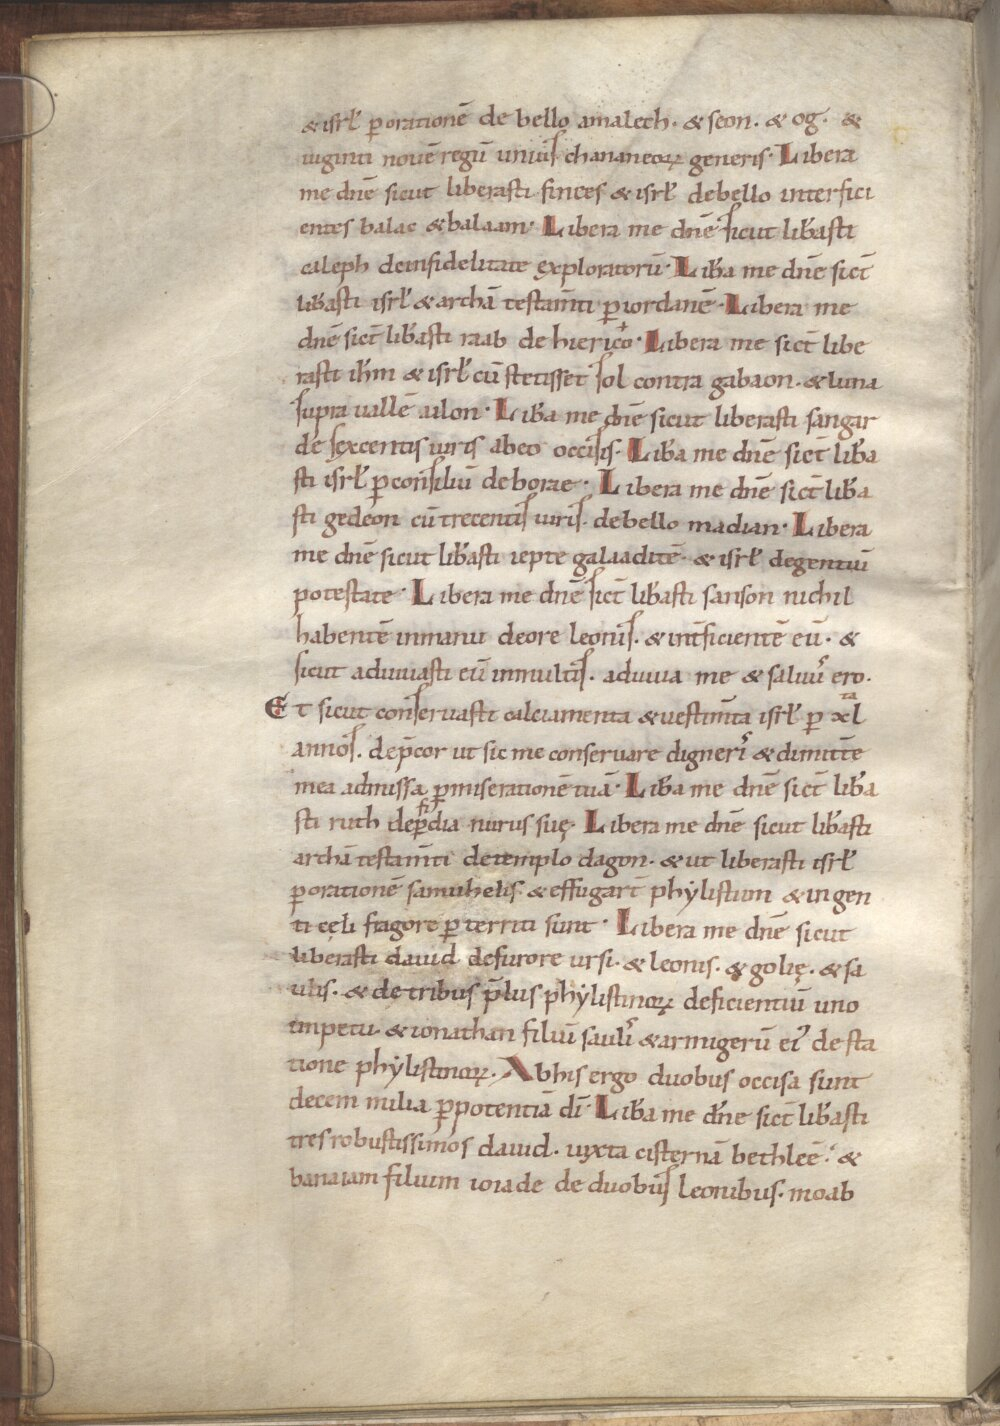 & isrł ꝑ orationē de bello amalech· & seon· & og· &
uiginti nouē regū uniuſ chananeoꝝ generis· Libera
me dnē sicut liberasti finees & isrł de bello interfici
entes balac & balaam· Libera me dnē sicut lib̄asti
caleph de infidelitate exploratorū· Lib̄a me dnē sic̄t
lib̄asti isrł & archā testam̄ti ꝑ iordanē· Libera me
dnē sic̄t lib̄asti raab de hierico· Libera me sic̄t libe
rasti ih̄m & isrł cū stetisset sol contra gabaon· & luna
supra uallē ailon· Lib̄a me dnē sicut liberasti sangar
de sexcentis uiris ab eo occisis· Lib̄a me dnē sic̄t lib̄a
sti isrł ꝑ consiliū deborae· Libera me dnē sic̄t lib̄a
sti gedeon cū trecentis uiris· de bello madian· Libera
me dnē sicut lib̄asti iepte galaaditē· & isrł de gentiū
potestate· Libera me dnē sic̄t lib̄asti sanson nichil
habentē in manu de ore leonis· & int̄ficientē eū· &
sicut adiuuasti eū in multis· adiuua me & saluus ero·
Et sicut conseruasti calciamenta & uestim̄ta isrł ꝑ xl ta
annos· dep̄cor ut sic me conseruare digneris & dimitt̄e
mea admissa ꝑ miserationē tuā· Lib̄a me dnē sic̄t lib̄a
sti ruth de ꝑfidia nurus suę· Libera me dnē sicut lib̄asti
archā testam̄ti de templo dagon· & ut liberasti isrł
ꝑ orationē samuhelis· & effugar̄t phylistiim & in gen
ti cęli fragore ꝑterriti sunt· Libera me dnē sicut
liberasti dauid de furore ursi· & leonis· & golię· & sa
ulis· & de tribus p̄lus phylistinoꝝ deficientiū uno
impetu· & ionathan filiū saulis & armigerū ei᾽ de sta
tione phylistinoꝝ· Ab his ergo duobus occisa sunt
decem milia ꝑ potentiā dī· Lib̄a me dn̄e sic̄t lib̄asti
tres robustissimos dauid· iuxta cisternā bethleē· &
banaiam filium ioiade de duobus leonibus· moab